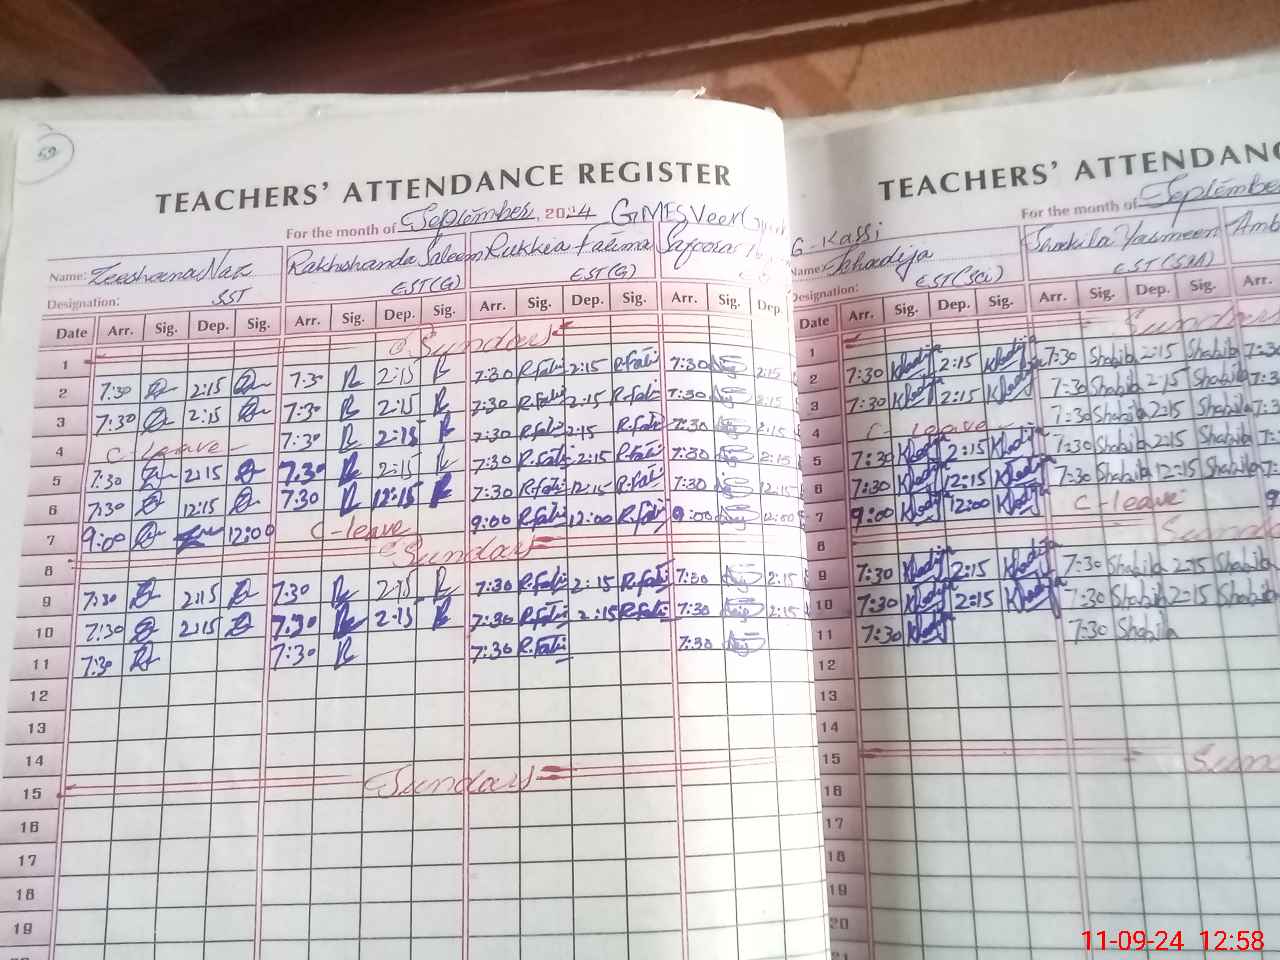 59
TEACHERS' ATTENDANCE REGISTER
For the month of September, 2024 GMES Veer
Name: Zeeshana Naz Rakhshanda Saleem Rukkia Fatima
Designation: SST EST(G) EST(G)
Date Arr. Sig. Dep. Sig. Arr. Sig. Dep. Sig. Arr. Sig. Dep. Sig. Arr. Sig. Dep.
1 Sunday
2 7:30 2:15 7:30 R 2:15 R 7:30 R.Fati 2:15 R.Fati 7:30 2:15
3 7:30 2:15 7:30 R 2:15 R 7:30 R.Fati 2:15 R.Fati 7:30 2:15
4 C-leave 7:30 R 2:15 R 7:30 R.Fati 2:15 R.Fati 7:30 2:15
5 7:30 2:15 7:30 R 2:15 R 7:30 R.Fati 2:15 R.Fati 7:30 2:15
6 7:30 12:15 7:30 R 12:15 R 7:30 R.Fati 12:15 R.Fati 7:30 12:15
7 9:00 12:00 C-leave 9:00 R.Fati 12:00 R.Fati 9:00 12:00
8 Sunday
9 7:30 2:15 7:30 R 2:15 R 7:30 R.Fati 2:15 R.Fati 7:30 2:15
10 7:30 2:15 7:30 R 2:15 R 7:30 R.Fati 2:15 R.Fati 7:30 2:15
11 7:30 7:30 R 7:30 R.Fati 7:30
12
13
14
15 Sunday
16
17
18
19
TEACHERS' ATTENDANC
G-Kassi
For the month of September
Name: Khadija Shakila Yasmeen Amb
Designation: EST(Sci) EST(SM)
Date Arr. Sig. Dep. Sig. Arr. Sig. Dep. Sig. Arr.
1 Sunday
2 7:30 Khadija 2:15 Khadija 7:30 Shakila 2:15 Shakila 7:30
3 7:30 Khadija 2:15 Khadija 7:30 Shakila 2:15 Shakila 7:3
4 C-leave 7:30 Shakila 2:15 Shakila 7:3
5 7:30 Khadija 2:15 Khadija 7:30 Shakila 2:15 Shakila 7:
6 7:30 Khadija 12:15 Khadija 7:30 Shakila 12:15 Shakila 7:3
7 9:00 Khadija 12:00 Khadija C-leave 9
8 Sund
9 7:30 Khadija 2:15 Khadija 7:30 Shakila 2:15 Shakila
10 7:30 Khadija 2:15 Khadija 7:30 Shakila 2:15 Shakila
11 7:30 Khadija 7:30 Shakila
12
13
14
15 Sun
16
17
18
19
20
11-09-24 12:58